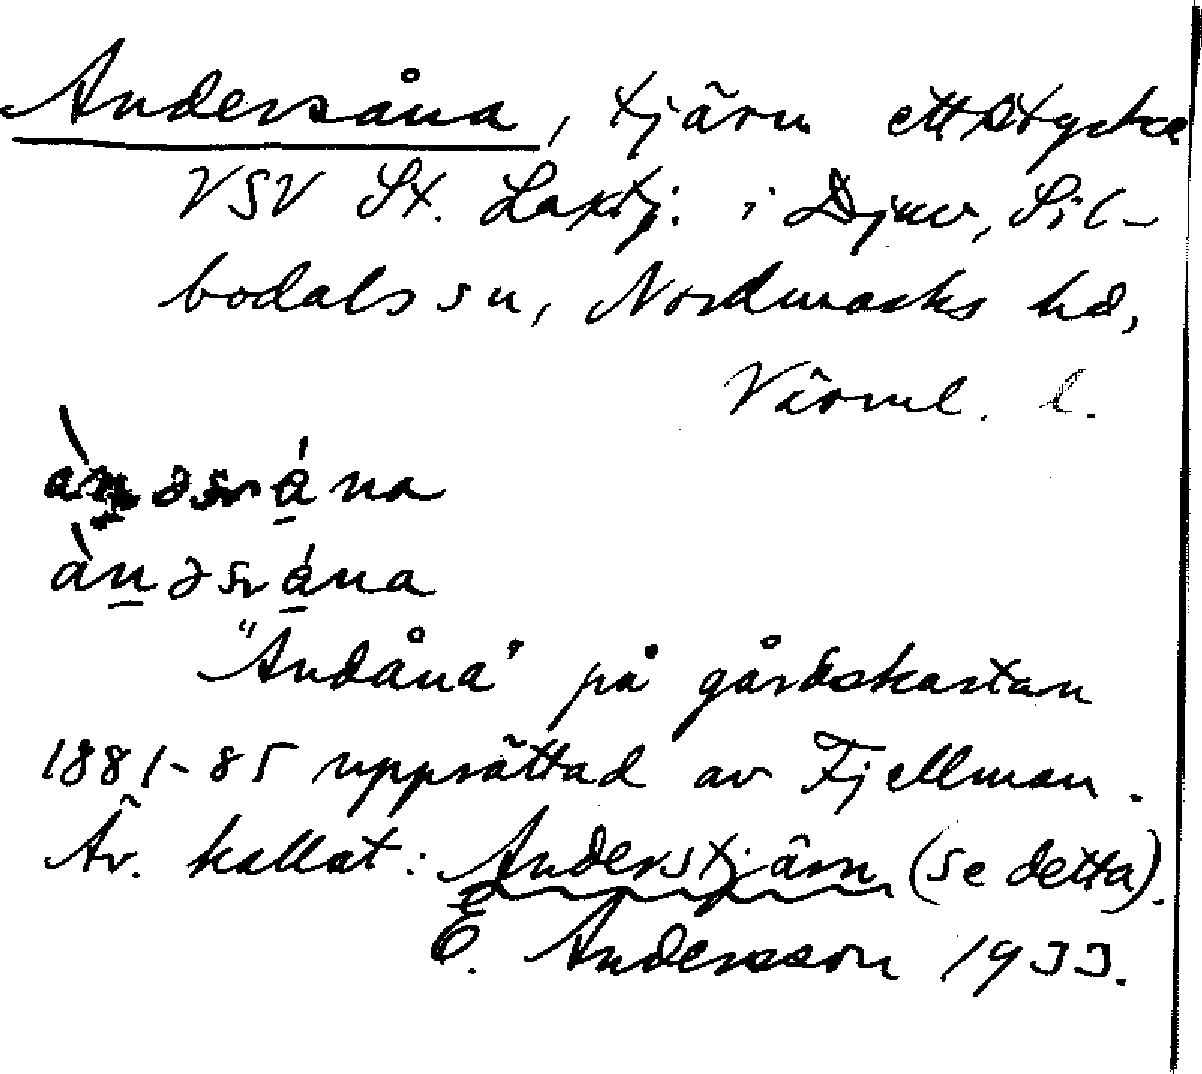 Andersåna, tjärn ett stycke
VSV St. Laxtj. i Djuv, Sil-
bodals sn, Nordmarks hd,
Värml. l.
ànəsrána
"Andåna" på gårdskartan
1881-85 upprättad av Fjellman.
Äv. kallat: Anderstjärn (se detta).
E. Andersson 1933.